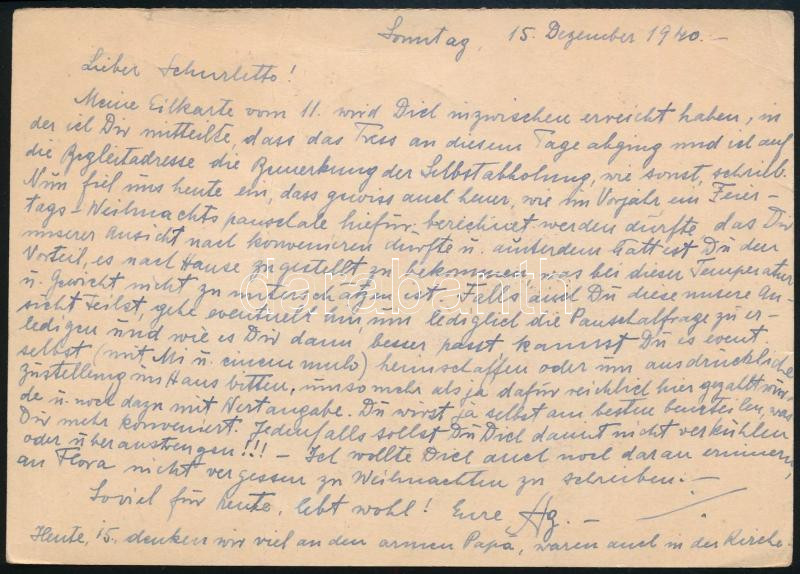 Sonntag, 15. Dezember 1940.-
Lieber Schurletto!
Meine Eilkarte vom 11. wird Dich inzwischen erreicht haben, in
der ich Dir mitteilte, dass das Fress an diesem Tage abging und ich auf
die Begleitadresse die Bemerkung der Selbstabholung, wie sonst, schrieb.
Nun fiel uns heute ein, dass gewiss auch heuer, wie im Vorjahr ein Feier-
tags-Weihnachtspauschale hiefür berechnet werden dürfte, das Dir
unserer Ansicht nach konvenieren dürfte u. außerdem hättest Du den
Vorteil, es nach Hause zugestellt zu bekommen, was bei dieser Temperatur
u. Gewicht nicht zu unterschätzen ist. Falls auch Du diese unsere An-
sicht teilst, gehe eventuell hin um lediglich die Pauschalfrage zu er-
ledigen und wie es Dir dann besser passt kannst Du es event.
selbst (mit Mi u. einem) heimschaffen oder um ausdrückliche
Zustellung ins Haus bitten, umsomehr als ja dafür reichlich hier gezahlt wur-
de u. noch dazu mit Wertangabe. Du wirst ja selbst am besten beurteilen, was
Dir mehr konveniert. Jedenfalls sollst Du Dich damit nicht verkühlen
oder überanstrengen!!! - Ich wollte Dich auch noch daran erinnern,
an Flora nicht vergessen zu Weihnachten zu schreiben.-
Soviel für heute, lebt wohl! Eure
Heute, 15. denken wir viel an den armen Papa, waren auch in der Kirche.
darabanth